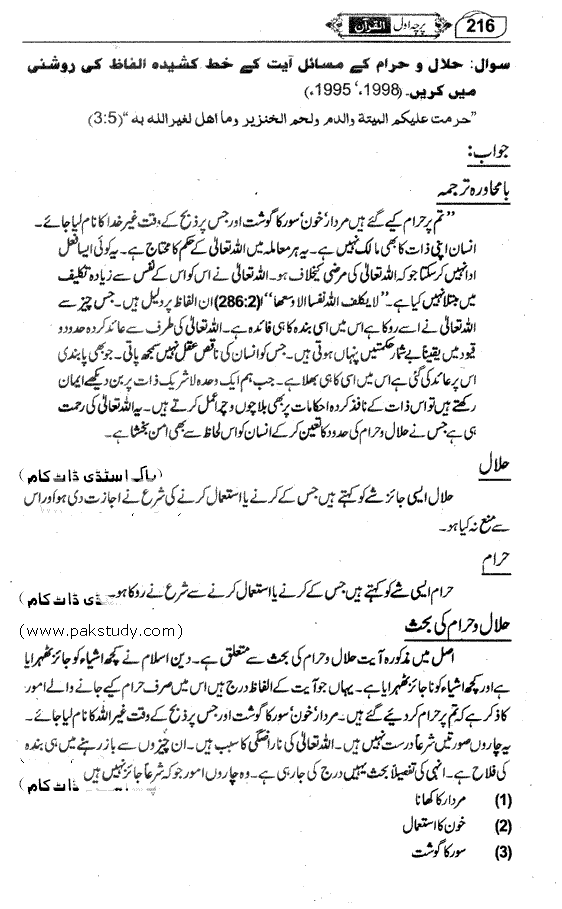 216 پرچہ اول القرآن
سوال: حلال و حرام کے مسائل آیت کے خط کشیدہ الفاظ کی روشنی
میں کریں۔ (1998ء، 1995ء)
”حرمت علیکم المیتة والدم ولحم الخنزیر وما اھل لغیر الله به“ (3:5)
جواب:
بامحاورہ ترجمہ
”تم پر حرام کیے گئے ہیں مردار‘ خون‘ سور کا گوشت اور جس پر ذبح کے وقت غیر خدا کا نام لیا جائے۔
انسان اپنی ذات کا بھی مالک نہیں ہے۔ یہ ہر معاملہ میں اللہ تعالیٰ کے حکم کا محتاج ہے۔ یہ کوئی ایسا فعل
ادا نہیں کر سکتا جو کہ اللہ تعالیٰ کی مرضی کیخلاف ہو۔ اللہ تعالیٰ نے اس کو اس کے نفس سے زیادہ تکلیف
میں مبتلا نہیں کیا ہے۔ ”لا یکلف اللہ نفسا الا وسعھا“ (286:2) ان الفاظ پر دلیل ہیں۔ جس چیز سے
اللہ تعالیٰ نے اسے روکا ہے اس میں اسی بندہ کا ہی فائدہ ہے۔ اللہ تعالیٰ کی طرف سے عائد کردہ حدود و
قیود میں یقیناً بے شمار حکمتیں پنہاں ہوتی ہیں۔ جس کو انسان کی ناقص عقل نہیں سمجھ پاتی۔ جو بھی پابندی
اس پر عائد کی گئی ہے اس میں اسی کا ہی بھلا ہے۔ جب ہم ایک وحدہ لا شریک ذات پر بن دیکھے ایمان
رکھتے ہیں تو اس ذات کے نافذ کردہ احکامات پر بھی بلا چوں و چرا عمل کرتے ہیں۔ یہ اللہ تعالیٰ کی رحمت
ہی ہے جس نے حلال و حرام کی حدود کا تعین کر کے انسان کو اس لحاظ سے بھی امن بخشا ہے۔
حلال
(پاک اسٹڈی ڈاٹ کام)
حلال ایسی جائز شے کو کہتے ہیں جس کے کرنے یا استعمال کرنے کی شرع نے اجازت دی ہو اور اس
سے منع نہ کیا ہو۔
حرام
حرام ایسی شے کو کہتے ہیں جس کے کرنے یا استعمال کرنے سے شرع نے روکا ہو۔
ڈی ڈاٹ کام)
حلال و حرام کی بحث
(www.pakstudy.com)
اصل میں مذکورہ آیت حلال و حرام کی بحث سے متعلق ہے۔ دین اسلام نے کچھ اشیاء کو جائز ٹھہرایا
ہے اور کچھ اشیاء کو ناجائز ٹھہرایا ہے۔ یہاں جو آیت کے الفاظ درج ہیں اس میں صرف حرام کیے جانے والے امور
کا ذکر ہے کہ تم پر حرام کر دیئے گئے ہیں۔ مردار‘ خون‘ سور کا گوشت اور جس پر ذبح کے وقت غیر اللہ کا نام لیا جائے۔
یہ چاروں صورتیں شرعاً درست نہیں ہیں۔ اللہ تعالیٰ کی ناراضگی کا سبب ہیں۔ ان چیزوں سے باز رہنے میں ہی بندہ
کی فلاح ہے۔ انہی کی تفصیلاً بحث یہیں درج کی جا رہی ہے۔ وہ چاروں امور جو کہ شرعاً جائز نہیں ہیں
ڈاٹ کام)
(1) مردار کا کھانا
(2) خون کا استعمال
(3) سور کا گوشت